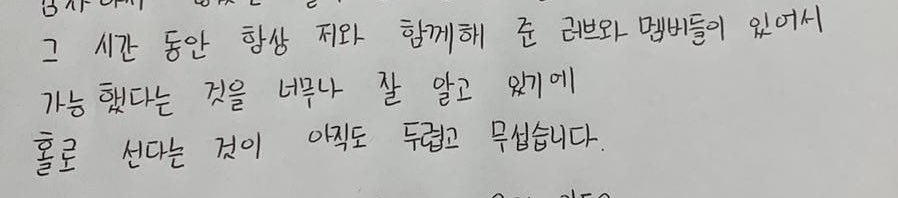 그 시간 동안 항상 저와 함께해 준 러브와 멤버들이 있어서
가능했다는 것을 너무나 잘 알고 있기에
홀로 선다는 것이 아직도 두렵고 무섭습니다.